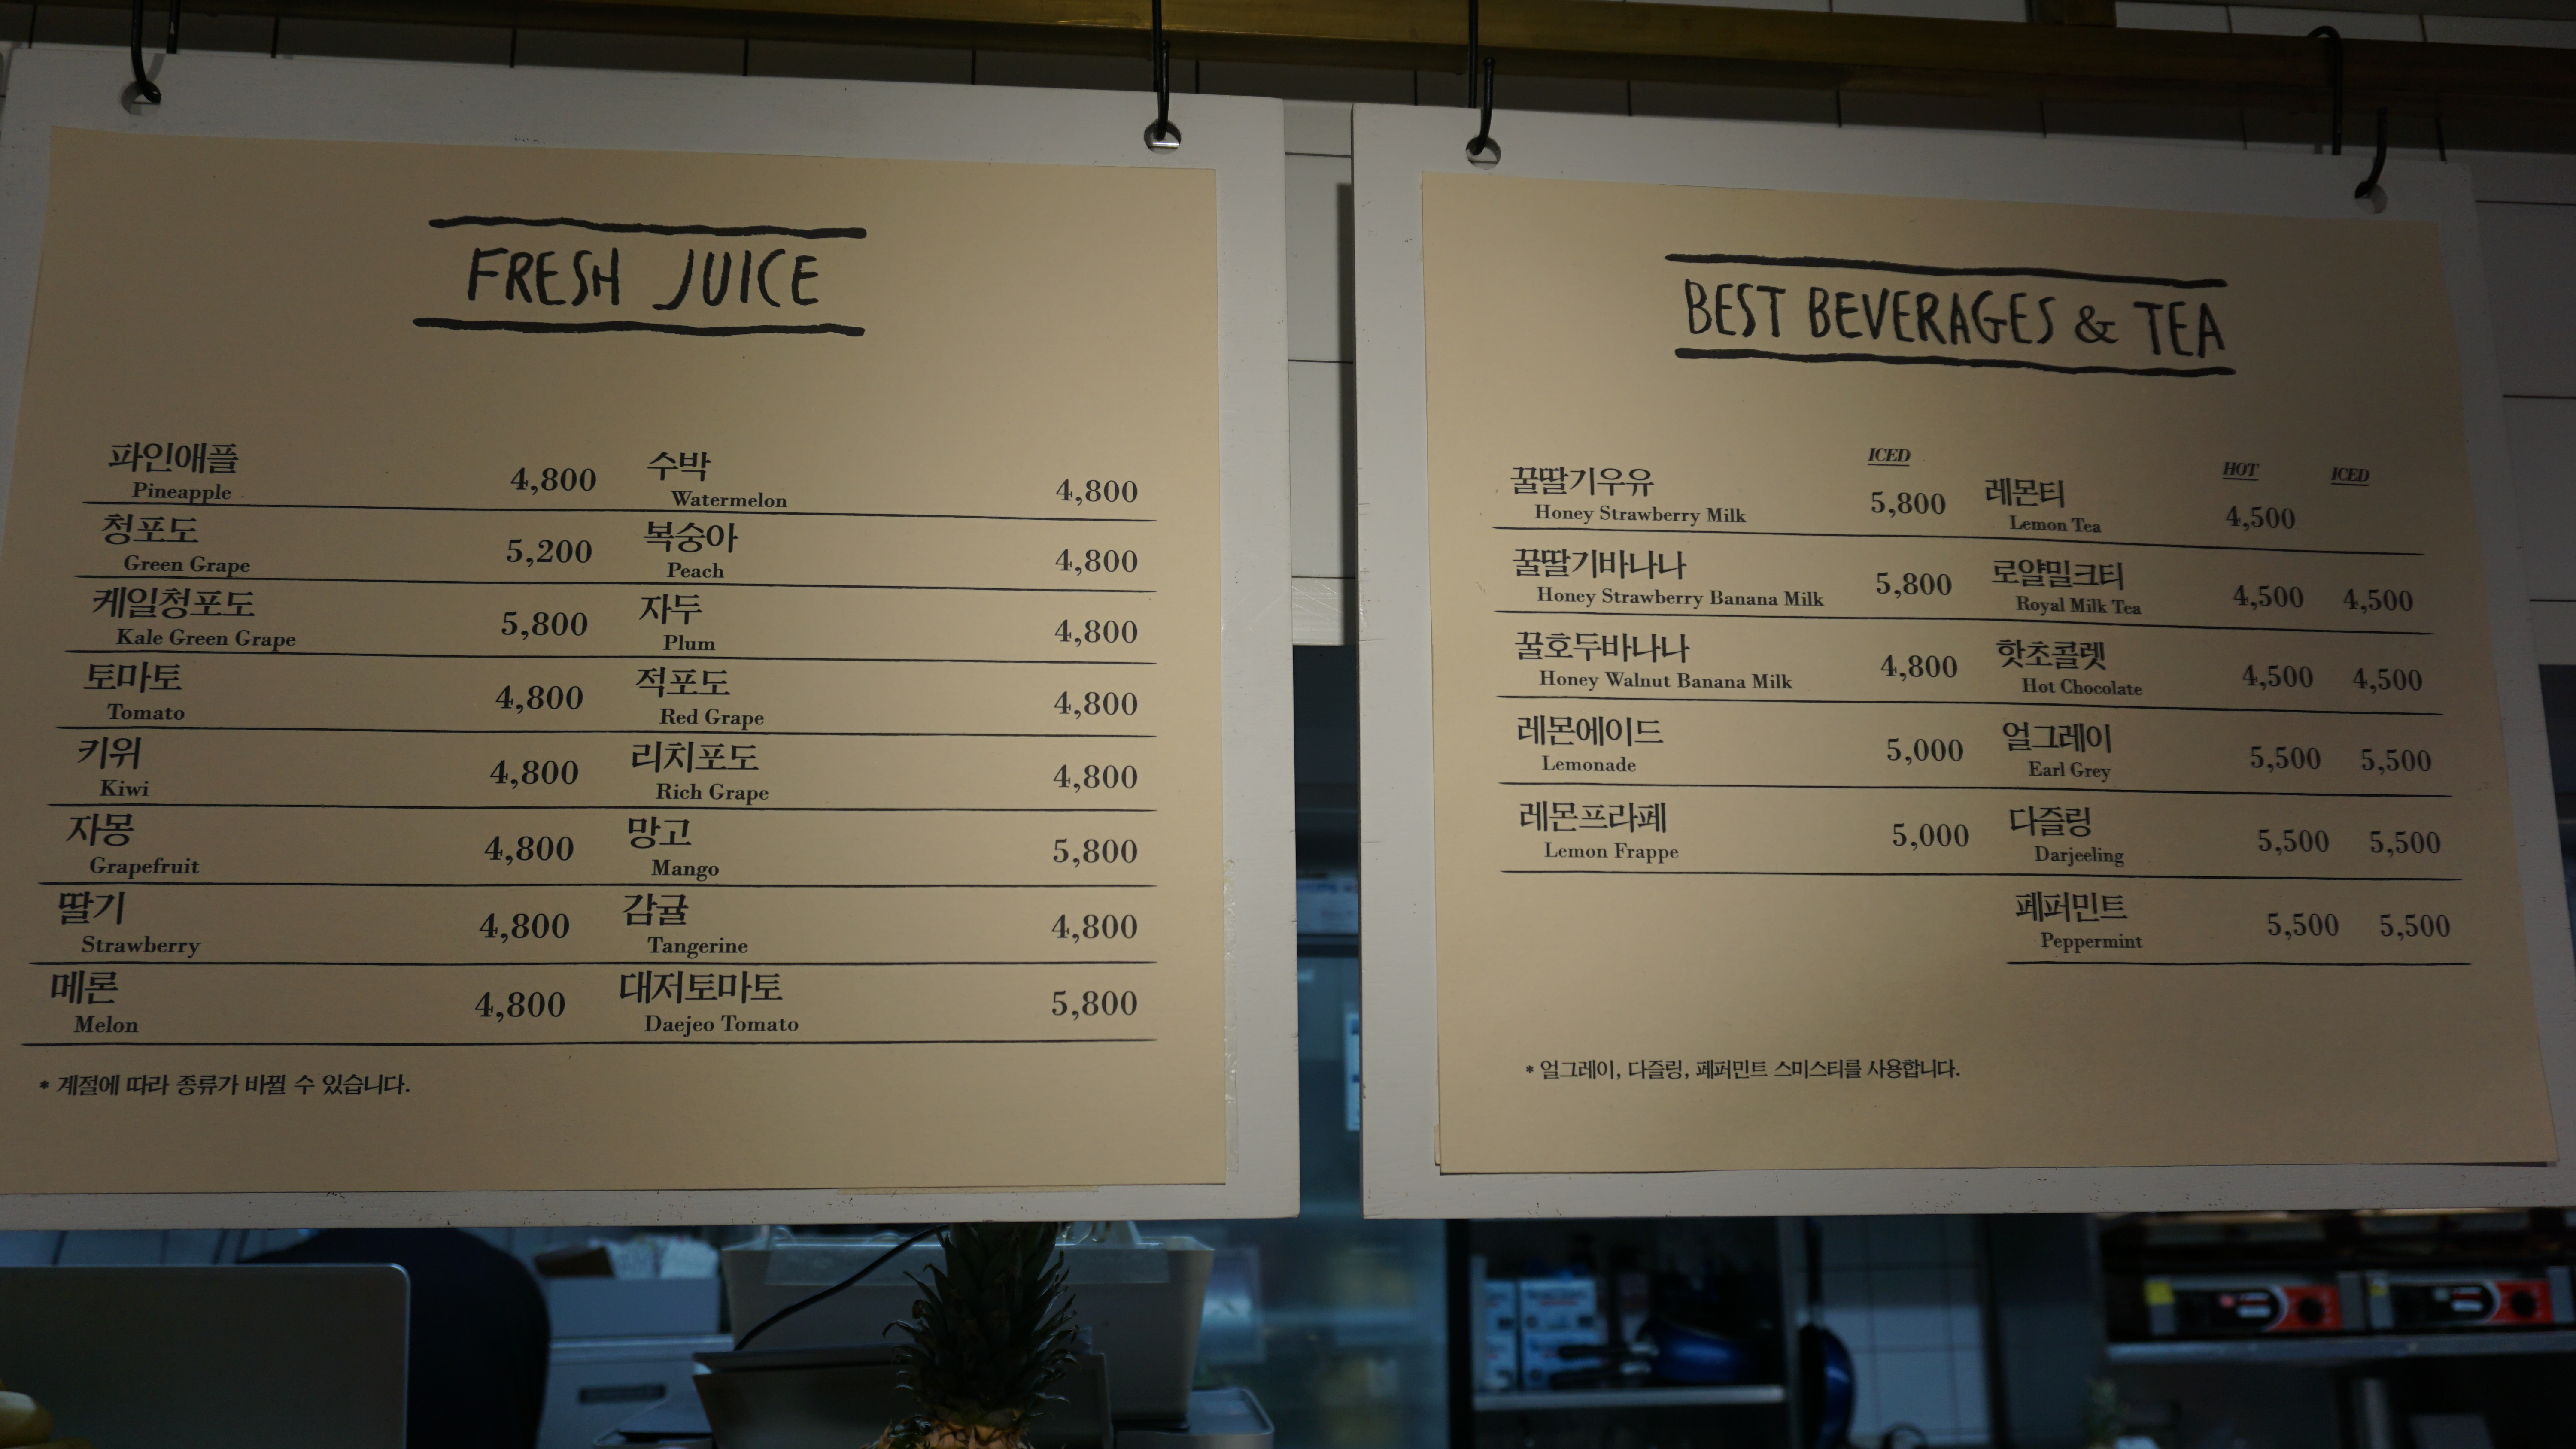 FRESH JUICE
파인애플 4,800
Pineapple
청포도 5,200
Green Grape
케일청포도 5,800
Kale Green Grape
토마토 4,800
Tomato
키위 4,800
Kiwi
자몽 4,800
Grapefruit
딸기 4,800
Strawberry
메론 4,800
Melon
수박 4,800
Watermelon
복숭아 4,800
Peach
자두 4,800
Plum
적포도 4,800
Red Grape
리치포도 4,800
Rich Grape
망고 5,800
Mango
감귤 4,800
Tangerine
대저토마토 5,800
Daejeo Tomato
* 계절에 따라 종류가 바뀔 수 있습니다.
BEST BEVERAGES & TEA
ICED
꿀딸기우유 5,800
Honey Strawberry Milk
꿀딸기바나나 5,800
Honey Strawberry Banana Milk
꿀호두바나나 4,800
Honey Walnut Banana Milk
레몬에이드 5,000
Lemonade
레몬프라페 5,000
Lemon Frappe
HOT ICED
레몬티 4,500
Lemon Tea
로얄밀크티 4,500 4,500
Royal Milk Tea
핫초콜렛 4,500 4,500
Hot Chocolate
얼그레이 5,500 5,500
Earl Grey
다즐링 5,500 5,500
Darjeeling
페퍼민트 5,500 5,500
Peppermint
* 얼그레이, 다즐링, 페퍼민트 스미스티를 사용합니다.